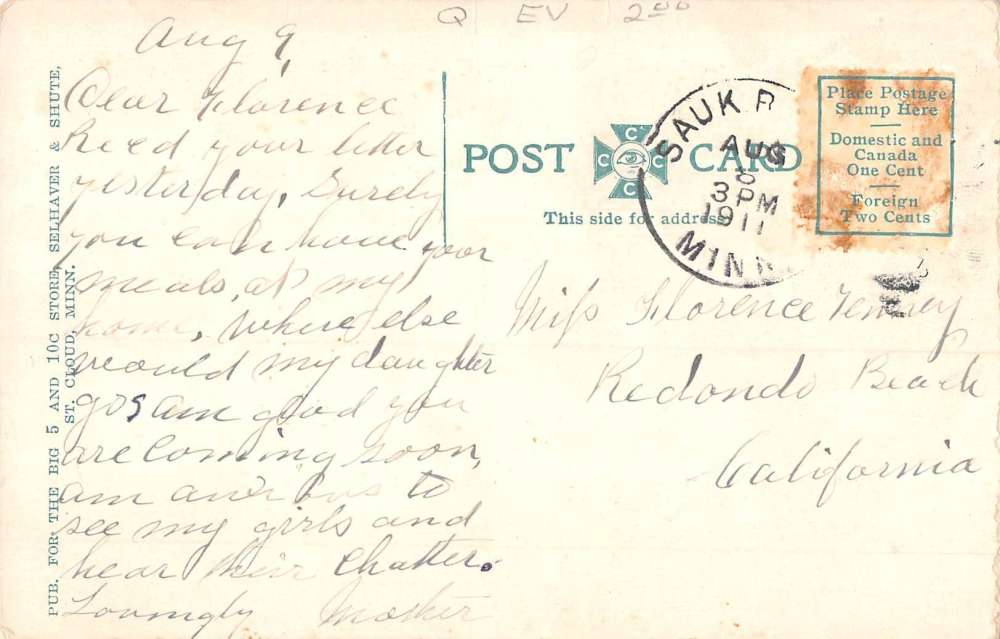 Q EV 2⁰⁰
Aug 9,
Dear Florence
Rec'd your letter
yesterday, Surely
you can have your
meals, at my
home, where else
would my daughter
go, am glad you
are coming soon,
am anxious to
see my girls and
hear their chatter.
Lovingly Mother
PUB. FOR THE BIG 5 AND 10C STORE, SELHAVER & SHUTE,
ST. CLOUD, MINN.
POST CARD
C C C C
This side for address
SAUK R
AUG
8
3 PM
1911
MINN
Place Postage
Stamp Here
Domestic and
Canada
One Cent
Foreign
Two Cents
Miss Florence
Redondo Beach
California